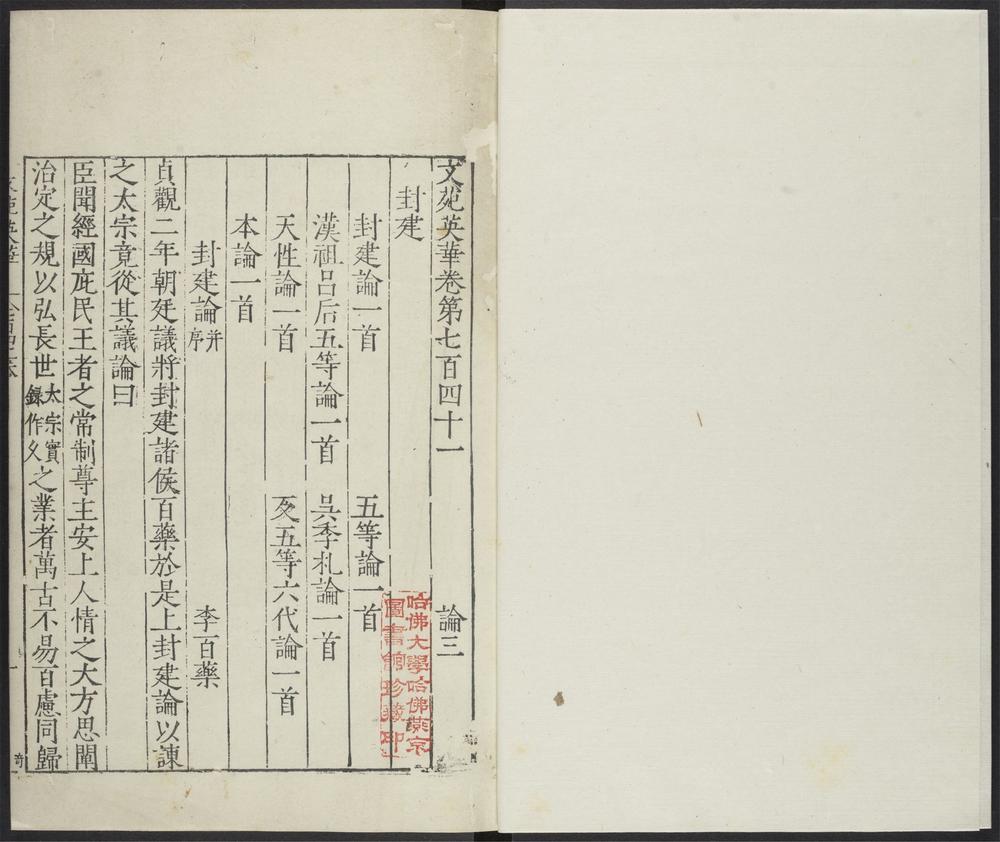 文苑英華卷第七百四十一 論三
封建
封建論一首 五等論一首
漢祖呂后五等論一首 吳季札論一首
天性論一首 反五等六代論一首
本論一首
封建論并序 李百藥
貞觀二年朝廷議將封建諸侯百藥於是上封建論以諫
之太宗竟從其議論曰
臣聞經國庇民王者之常制尊主安上人情之大方思闡
治定之規以弘長世太宗實錄作久之業者萬古不易百慮同歸
哈佛大學哈佛燕京
圖書館珍藏印